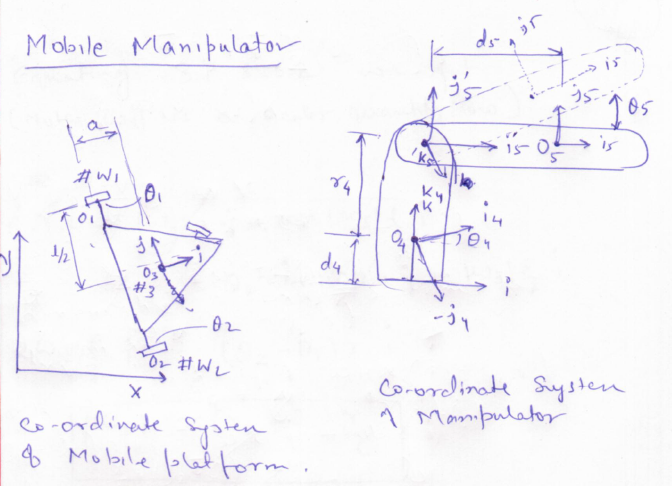 Mobile Manipulator
a
#W1
θ1
O1
l/2
y
j
i
O3
#3
θ2
O2 #W2
x
Co-ordinate System
of Mobile platform.
d5
j5
i5
j'5
j5
θ5
i'5 O5 i5
k5
r4
k4
k
i4
O4
θ4
d4
i
-j4
Co-ordinate System
of Manipulator